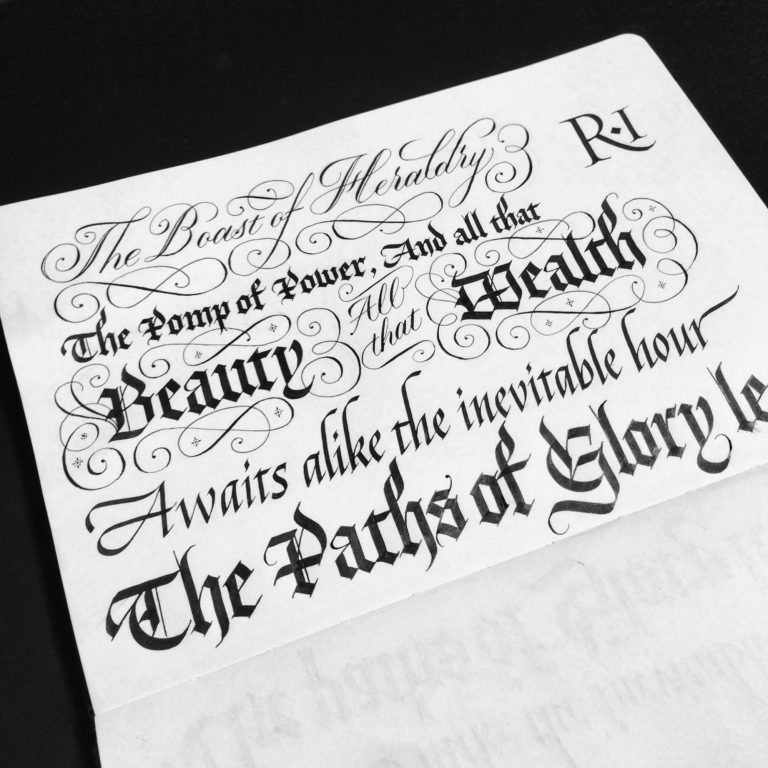 The Boast of Heraldry
R·I
The Pomp of Power, And all that
Beauty All that Wealth
Awaits alike the inevitable hour
The Paths of Glory le